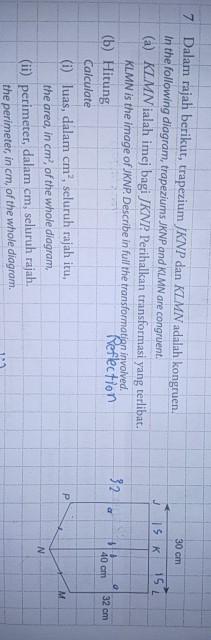 7 Dalam rajah berikut, trapezium JKNP dan KLMN adalah kongruen.
In the following diagram, trapeziums JKNP and KLMN are congruent.
(a) KLMN ialah imej bagi JKNP. Perihalkan transformasi yang terlibat.
KLMN is the image of JKNP. Describe in full the transformation involved.
Reflection
(b) Hitung
Calculate
(i) luas, dalam cm², seluruh rajah itu,
the area, in cm², of the whole diagram,
(ii) perimeter, dalam cm, seluruh rajah.
the perimeter, in cm, of the whole diagram.
30 cm
J 15 K 15 L
32
40 cm
32 cm
P
M
N